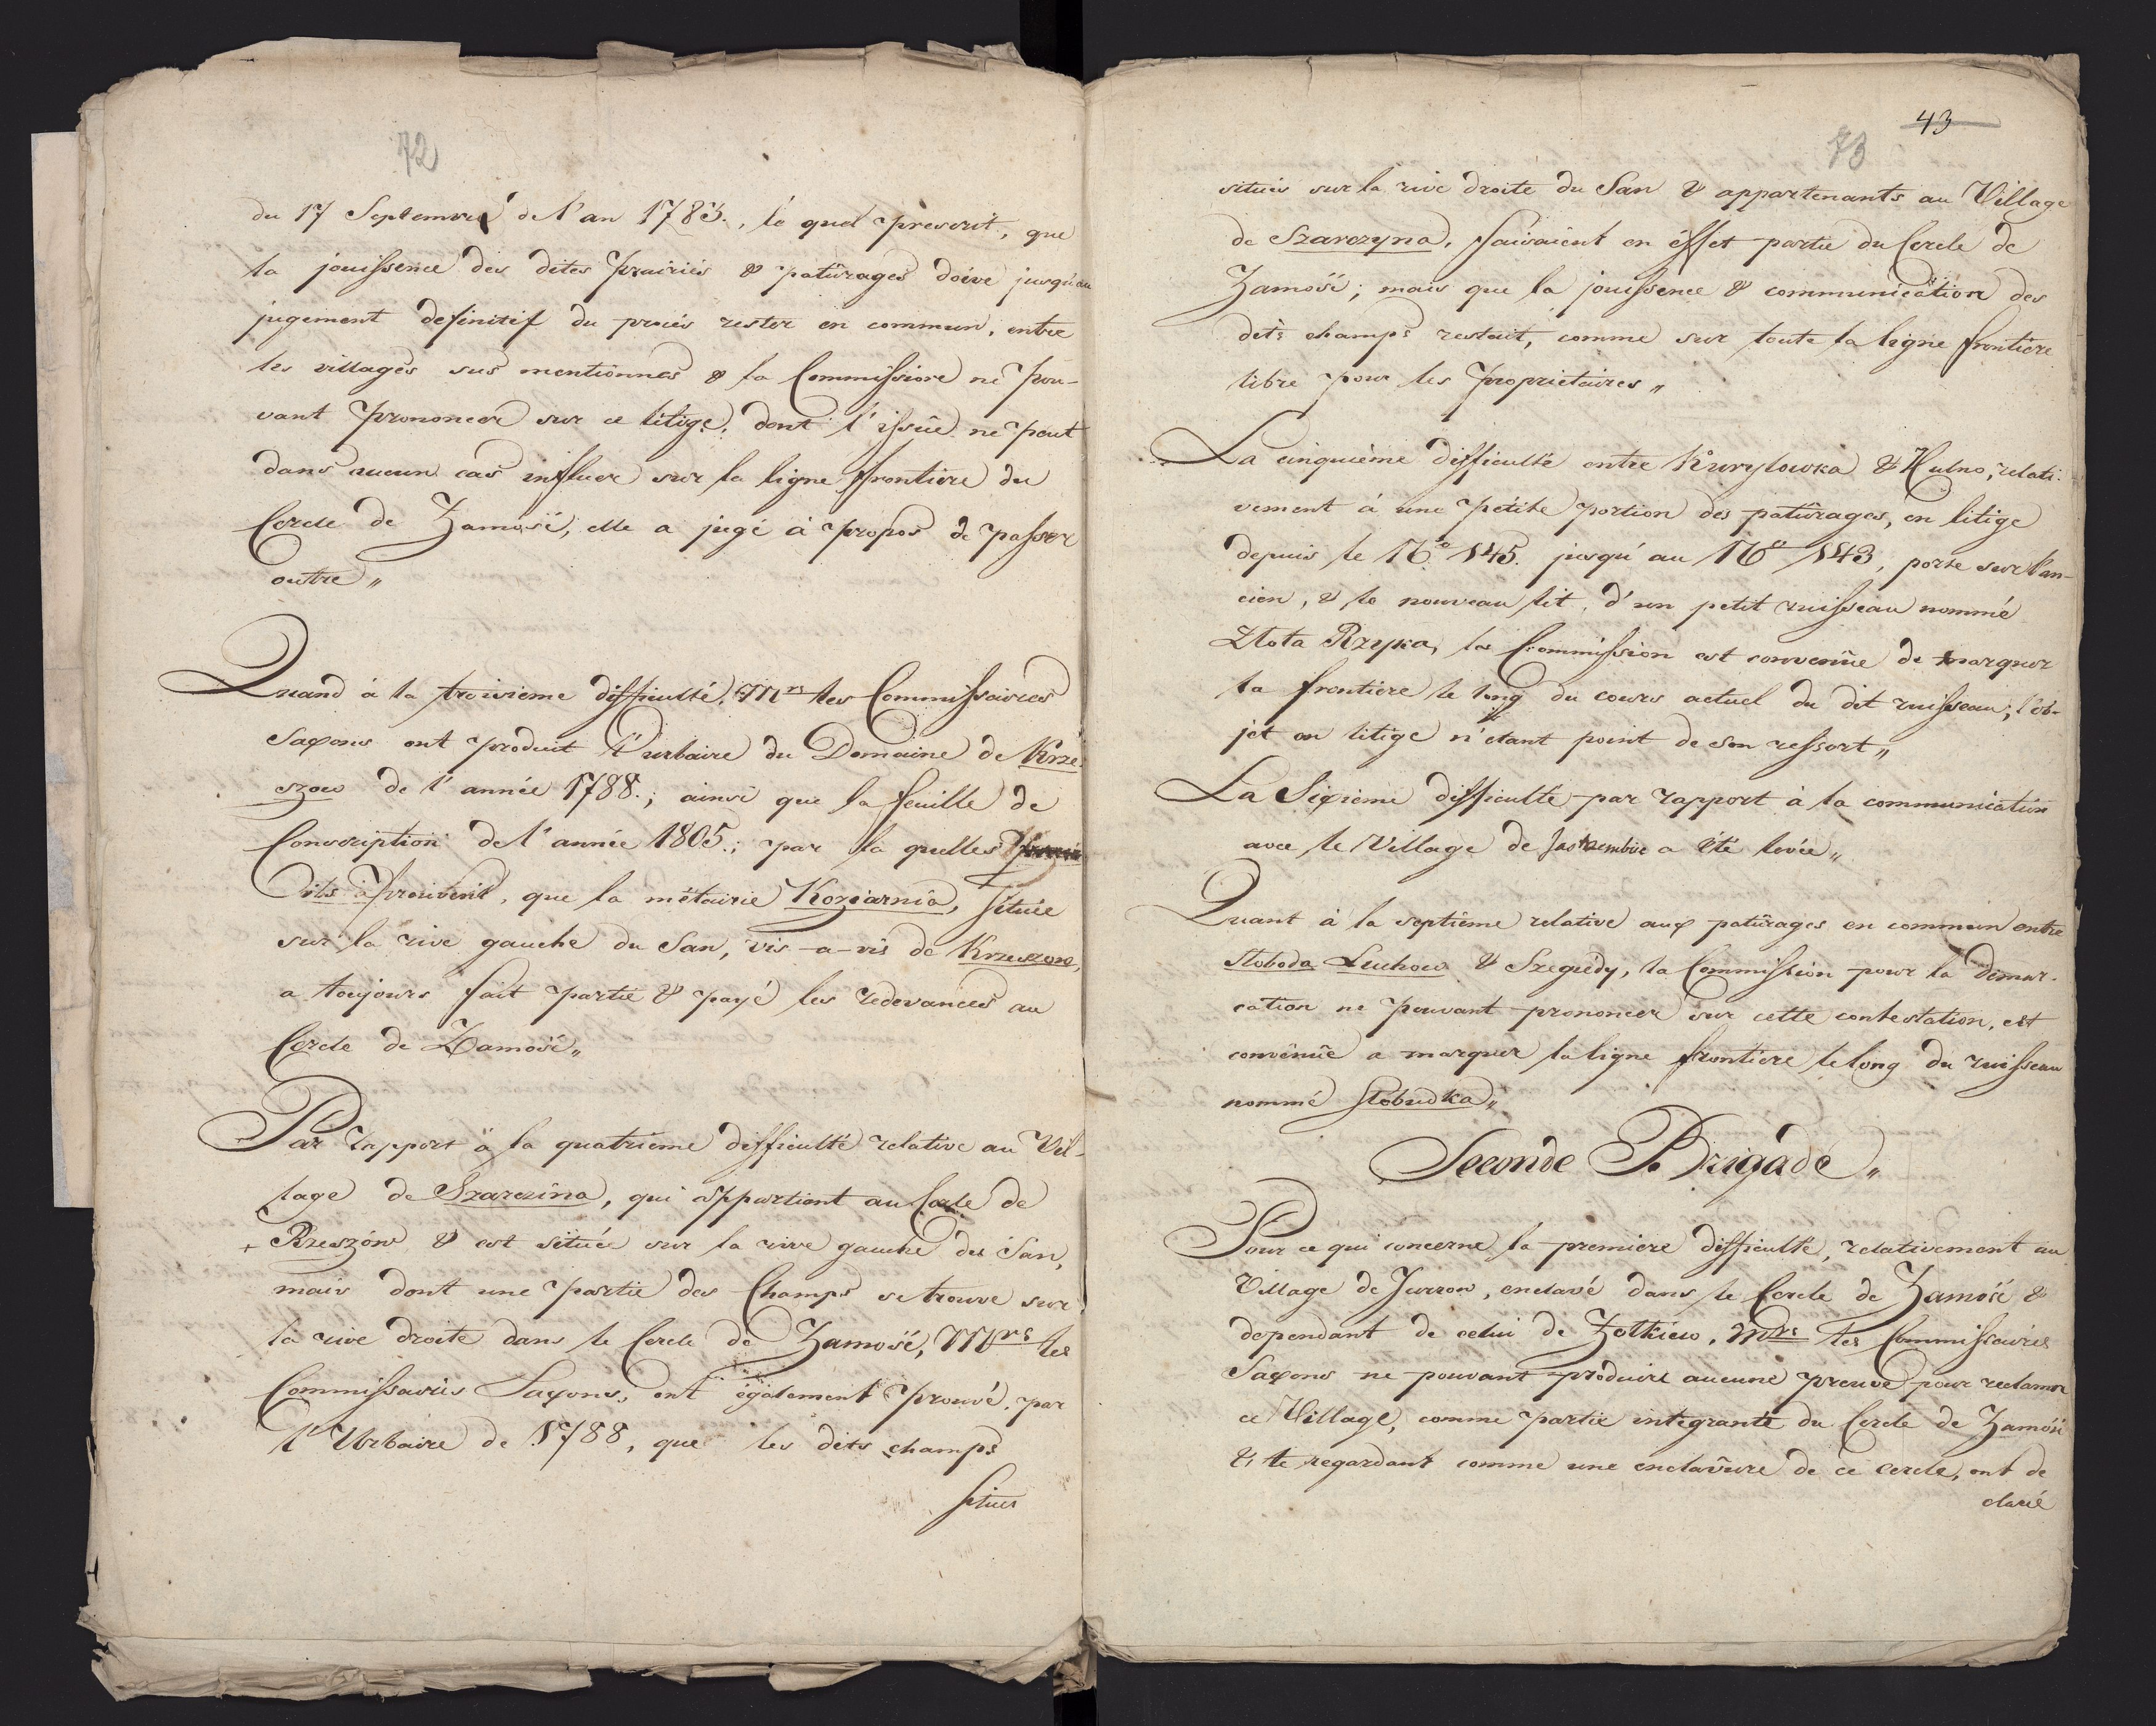 72
du 17 Septembre de l'an 1783., le quel prescrit, que
la jouissence des dites prairiès & patûrages doive jusqu'au
jugement definitif du procès rester en commun, entre
les villagès sus mentionnes & la Commission ne pou-
vant prononcer sur ce litige, dont l'issüe ne peut
dans aucun cas influer sur la ligne frontiere du
Cercle de Zamosć, elle a jugé à propos de passer
outre „
Quand à la troisieme difficulté, Mrs les Commissaires
Saxons ont produit l'urbaire du Domaine de Krze-
szow de l'année 1788.; ainsi que la feuille de
Conscription de l'année 1805.; par la quelles
ils prouvent, que la métairie Koziarnia, située
sur la rive gauche du San, vis-a-vis de Krzeszow,
a toujours fait partie & payé les redevances au
Cercle de Zamosć „
Par rapport à la quatrième difficulté relative au Vil-
lage de Szarzina, qui appartient au Cercle de
+ Rzeszów & est située sur la rive gauche du San,
mais dont une partie des Champs se trouve sur
la rive droite dans le Cercle de Zamosć, Mrs les
Commissaires Saxons, ont également prouvé, par
l'Urbaire de 1788, que les dits champs
situes
43
73
situés sur la rive droite du San & appartenants au Village
de Szarczyna, faisaient en éffet partie du Cercle de
Zamosć; mais que la jouissence & communication des
dits champs restait, comme sur toute la ligne frontiere
libre pour les proprietaires „
La cinquième difficulté entre Kurylowka & Kulno, relati-
vement à une pétite portion des patûrages, en litige
depuis le No 145. jusqu'au No 143, porte sur l'an-
cien, & le nouveau lit, d'un petit ruisseau nommé
Zlota Rzyka, la Commission est convenüe de marquer
la frontiere le long du cours actuel du dit ruisseau; l'ob-
jet en litige n'etant point de son ressort „
La Sixieme difficulte par rapport à la communication
avec le Village de Jastrzembie a été levée „
Quant à la septième relative aux patûrages en commun entre
Sloboda Luchow & Szegiédy, la Commission pour la Demar-
cation ne pouvant prononcer sur cette contestation, est
convénüe a marquer la ligne frontiere le long du ruisseau
nommé Slobudka „
Seconde Brigade „
Pour ce qui concerne la premiere difficulté, relativement au
Village de Jurrow, enclavé dans le Cercle de Zamosć &
dependant de celui de Zolkiew, Mrs les Commissaires
Saxons ne pouvant produire aucune preuve pour reclamer
ce Village, comme partie integrante du Cercle de Zamosć
& le regardant comme une enclavûre de ce cercle, ont de
claré